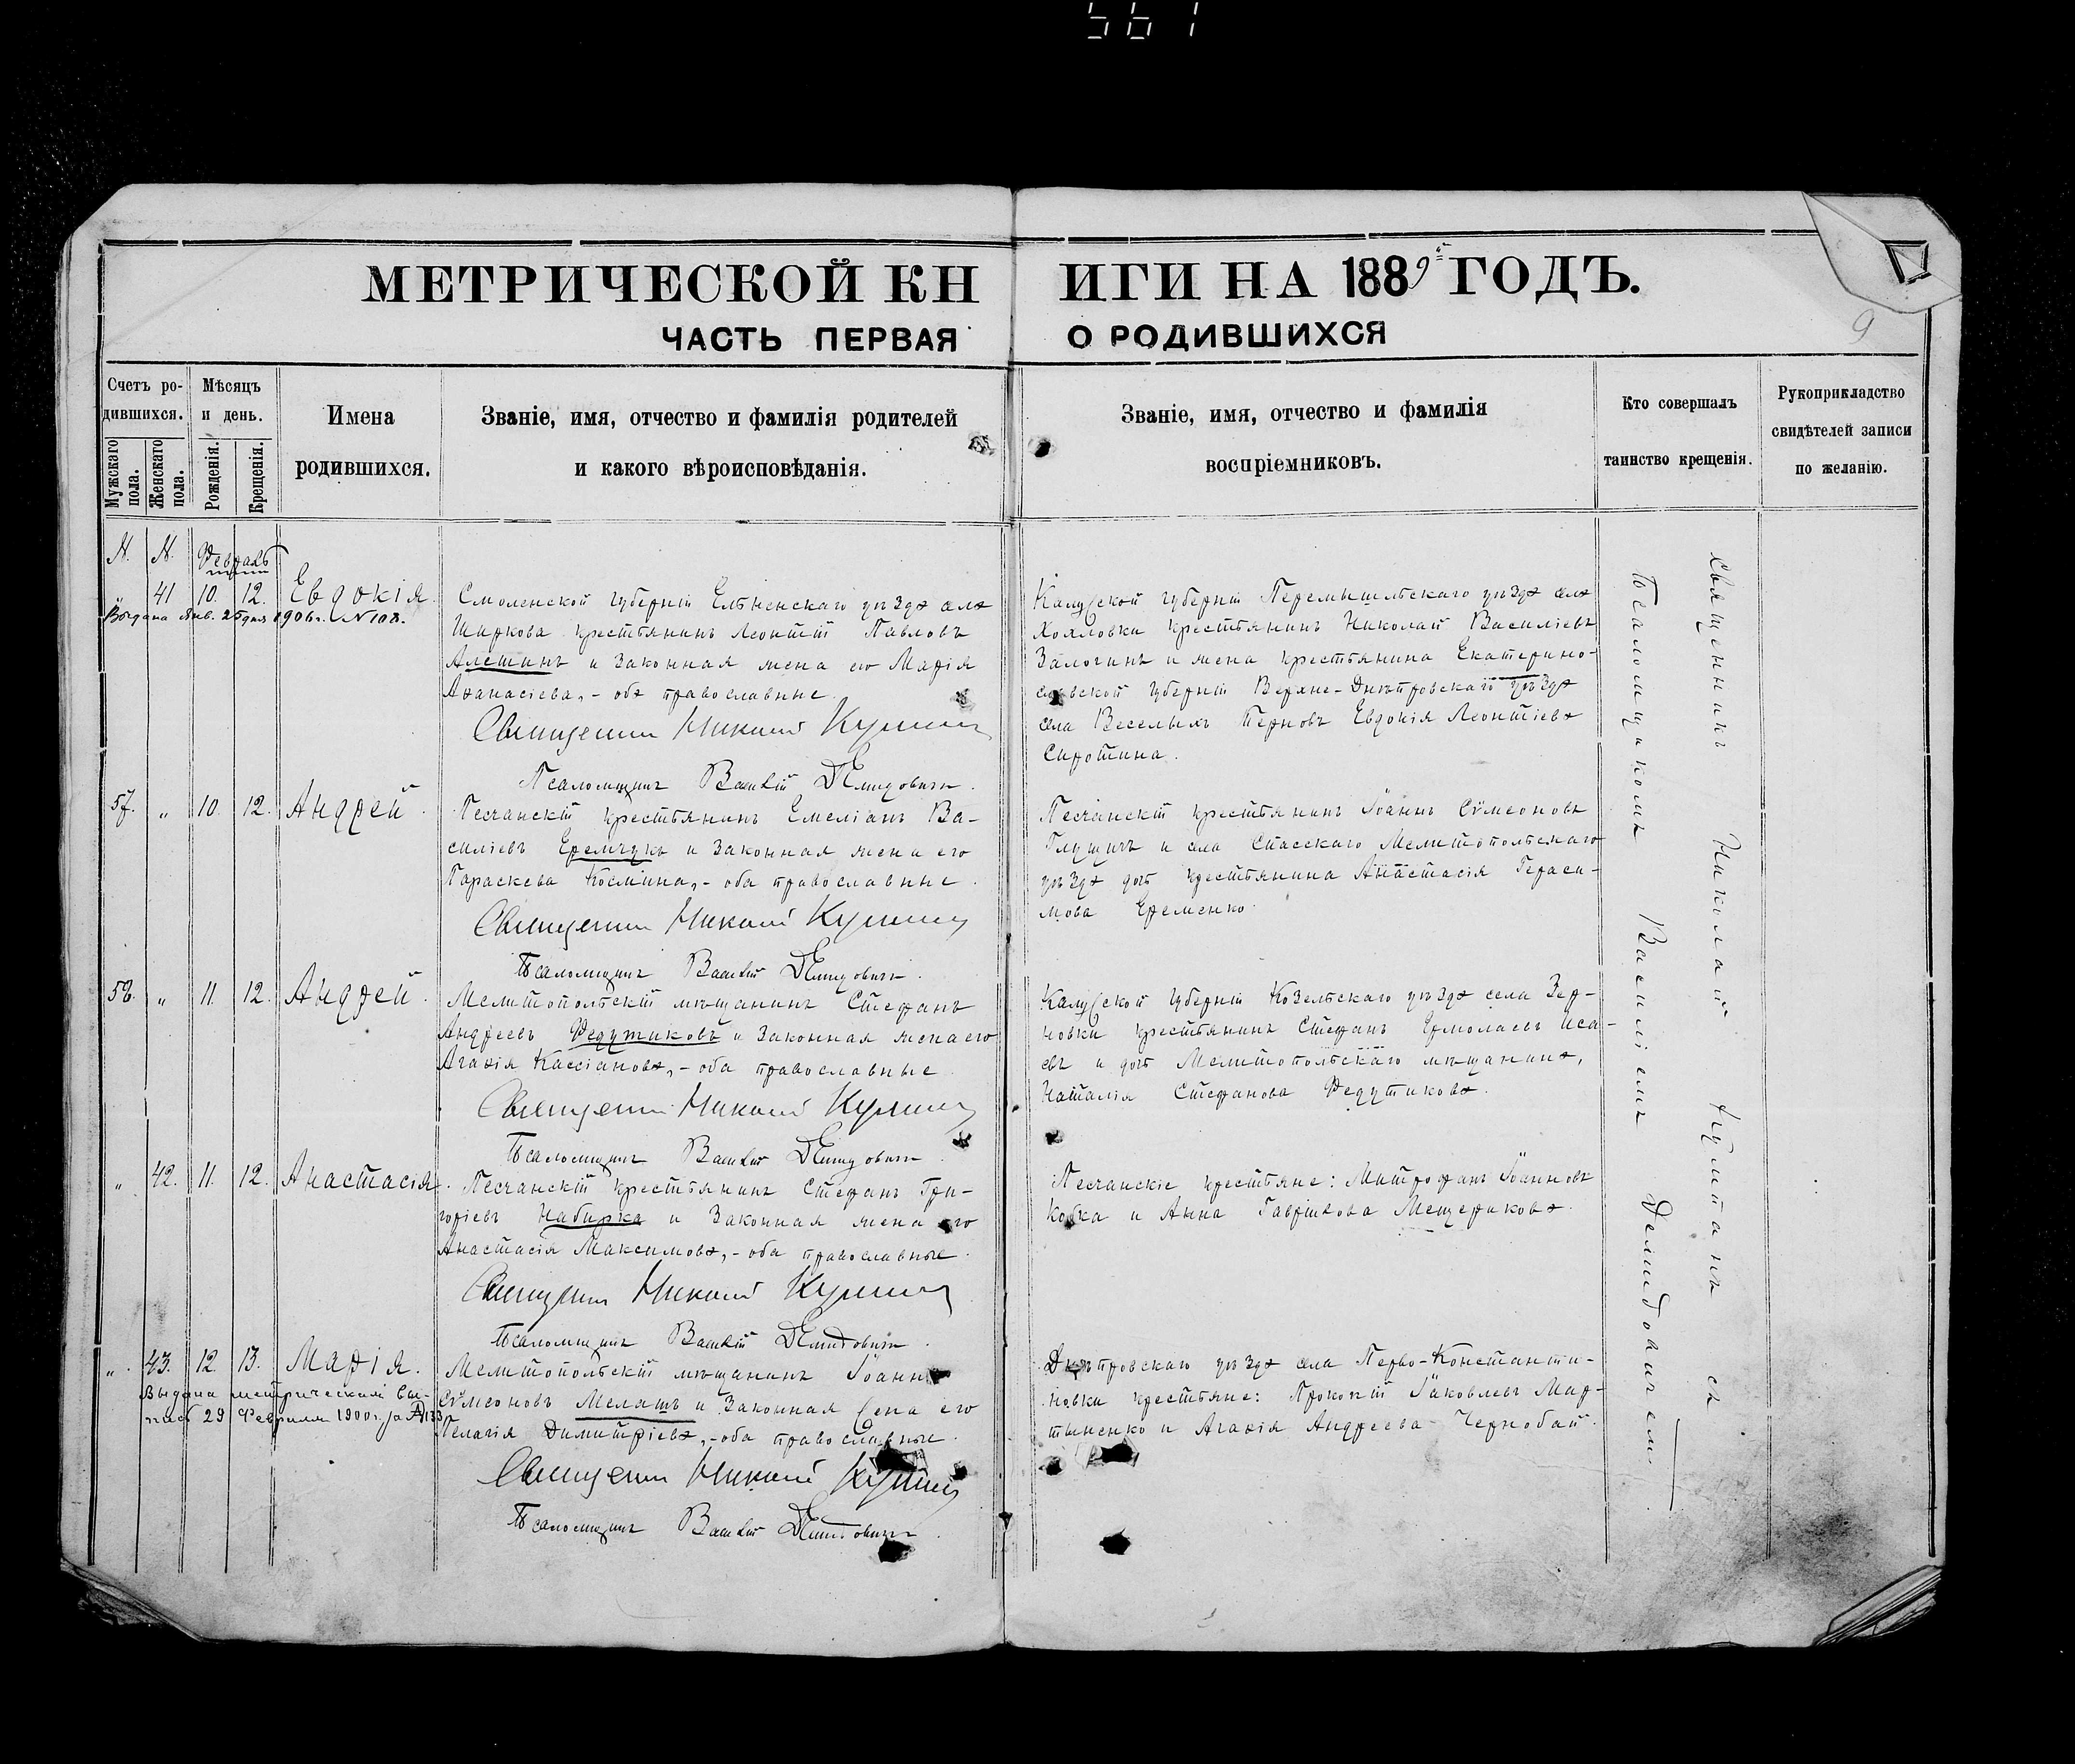 561
МЕТРИЧЕСКОЙ КНИГИ НА 1889 ГОДЪ.
ЧАСТЬ ПЕРВАЯ О РОДИВШИХСЯ
9
Счетъ ро-
дившихся.
Мужскаго пола.
Женскаго пола.
Мѣсяцъ
и день.
Рожденія.
Крещенія.
Имена
родившихся.
Званіе, имя, отчество и фамилія родителей
и какого вѣроисповѣданія.
Званіе, имя, отчество и фамилія
воспріемниковъ.
Кто совершалъ
таинство крещенія.
Рукоприкладство
свидѣтелей записи
по желанію.
№. №. Февраль
41 10. 12. Евдокія.
Выдана Янв. 25 дня 1906 г. №108.
Смоленской губерніи Ельненскаго уѣзда села
Шаркова крестьянинъ Леонтій Павловъ
Алешинъ и законная жена его Марія
Аѳанасіева, - оба православные.
Священникъ Николай
Псаломщикъ Василій Демидовичъ.
Калужской губерніи Перемышльскаго уѣзда села
Хохловки крестьянинъ Николай Василіевъ
Залогинъ и жена крестьянина Екатерино-
славской губерніи Верхне-Днѣпровскаго уѣзда
села Веселыхъ Терновъ Евдокія Леонтіева
Сиротина.
57. „ 10. 12. Андрей.
Песчанскій крестьянинъ Емеліанъ Ва-
силіевъ Еремчукъ и законная жена его
Параскева Космина, - оба православные.
Священникъ Николай
Псаломщикъ Василій Демидовичъ.
Песчанскій крестьянинъ Іоаннъ Сѵмеоновъ
и села Спасскаго Мелитопольскаго
уѣзда дочь крестьянина Анастасія Гераси-
мова Еременко.
58. „ 11. 12. Андрей.
Мелитопольскій мѣщанинъ Стефанъ
Андреевъ Федутиковъ и законная жена его
Агаѳія Кассіанова, - оба православные.
Священникъ Николай
Псаломщикъ Василій Демидовичъ.
Калужской губерніи Козельскаго уѣзда села Зер-
новки крестьянинъ Стефанъ Ермолаевъ Иса-
евъ и дочь Мелитопольскаго мѣщанина,
Наталія Стефанова Федутикова.
„ 42. 11. 12. Анастасія.
Песчанскій крестьянинъ Стефанъ Гри-
горіевъ Набирка и законная жена его
Анастасія Максимова, - оба православные.
Священникъ Николай
Псаломщикъ Василій Демидовичъ.
Песчанскіе крестьяне: Митрофанъ Іоанновъ
и Анна Гавріилова Мещерикова.
„ 43. 12. 13. Марія.
Выдана метрическая вы-
пись 29 Февраля 1900 г. за № 133
Мелитопольскій мѣщанинъ Іоаннъ
Сѵмеоновъ Мелашъ и законная жена его
Пелагія Димитріева, - оба православные.
Священникъ Николай
Псаломщикъ Василій Демидовичъ.
Днѣпровскаго уѣзда села Перво-Константи-
новки крестьяне: Прокопій Іаковлевъ Мар-
тыненко и Агаѳія Андреева Чернобай.
Священникъ Николай съ
Псаломщикомъ Василіемъ Демидовичемъ.